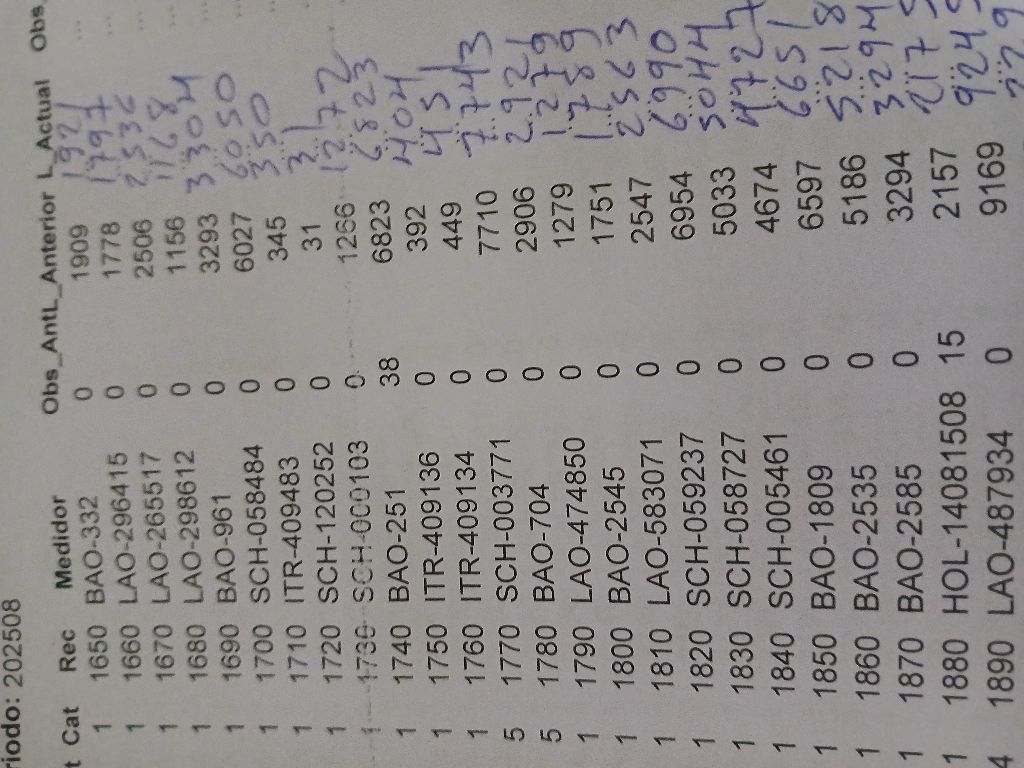 riodo: 202508
t Cat Rec Medidor Obs_Ant L_Anterior L_Actual Obs_
1 1650 BAO-332 0 1909 1921
1 1660 LAO-296415 0 1778 1797
1 1670 LAO-265517 0 2506 2536
1 1680 LAO-298612 0 1156 1168
1 1690 BAO-961 0 3293 3304
1 1700 SCH-058484 0 6027 6050
1 1710 ITR-409483 0 345 350
1 1720 SCH-120252 0 31 31
1 1730 SCH-000103 0 1266 1272
1 1740 BAO-251 38 6823 6823
1 1750 ITR-409136 0 392 404
1 1760 ITR-409134 0 449 451
5 1770 SCH-003771 0 7710 7743
5 1780 BAO-704 0 2906 2921
1 1790 LAO-474850 0 1279 1279
1 1800 BAO-2545 0 1751 1789
1 1810 LAO-583071 0 2547 2563
1 1820 SCH-059237 0 6954 6990
1 1830 SCH-058727 0 5033 5044
1 1840 SCH-005461 0 4674 4727
1 1850 BAO-1809 0 6597 6651
1 1860 BAO-2535 0 5186 5218
1 1870 BAO-2585 0 3294 3294
1 1880 HOL-14081508 15 2157
4 1890 LAO-487934 0 9169